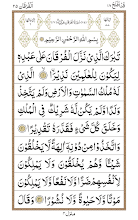 الفرقان ٢٥
قد افلح ١٨
بِسْمِ اللّٰهِ الرَّحْمٰنِ الرَّحِيْمِ
تَبٰرَكَ الَّذِيْ نَزَّلَ الْفُرْقَانَ عَلٰى عَبْدِهٖ
لِيَكُوْنَ لِلْعٰلَمِيْنَ نَذِيْرًا ۙ الَّذِيْ
لَهٗ مُلْكُ السَّمٰوٰتِ وَالْاَرْضِ وَلَمْ يَتَّخِذْ
وَلَدًا وَّلَمْ يَكُنْ لَّهٗ شَرِيْكٌ فِي الْمُلْكِ
وَخَلَقَ كُلَّ شَيْءٍ فَقَدَّرَهٗ تَقْدِيْرًا
وَاتَّخَذُوْا مِنْ دُوْنِهٖٓ اٰلِهَةً لَّا يَخْلُقُوْنَ
شَيْـًٔا وَّهُمْ يُخْلَقُوْنَ وَلَا يَمْلِكُوْنَ
لِاَنْفُسِهِمْ ضَرًّا وَّلَا نَفْعًا وَّلَا يَمْلِكُوْنَ
مَوْتًا وَّلَا حَيٰوةً وَّلَا نُشُوْرًا وَقَالَ